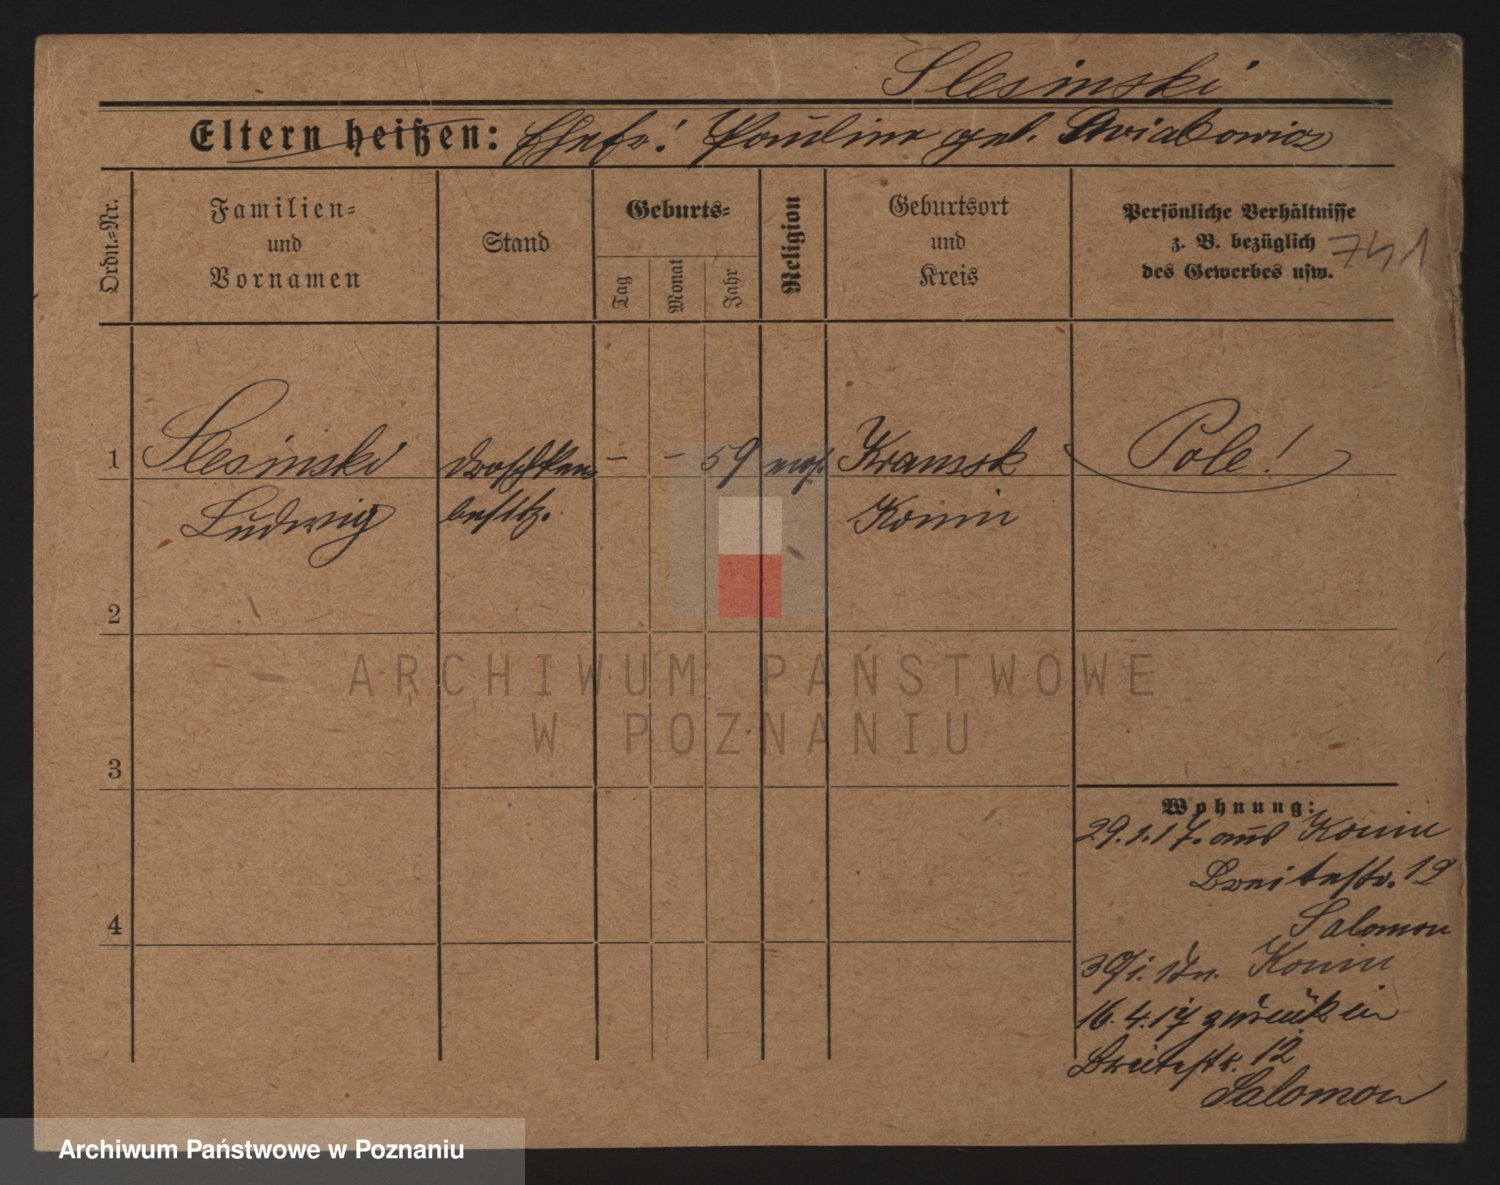 Slesinski
Eltern heißen: Ehefr! Pauline geb. Awiatowicz
Ordn.-Nr.
Familien-
und
Vornamen
Stand
Geburts-
Tag
Monat
Jahr
Religion
Geburtsort
und
Kreis
Persönliche Verhältnisse
z. B. bezüglich
des Gewerbes usw.
741
1 Slesinski Droschken - - 59 mos. Kramsk Pole!
Ludwig besitz. Konin
2
3
4
Wohnung:
29.1.17. aus Konin
Breitestr. 19
Salomon
30/1. 17 n. Konin
16.4.17 zurück in
Breitestr. 12
Salomon
ARCHIWUM PAŃSTWOWE
W POZNANIU
Archiwum Państwowe w Poznaniu